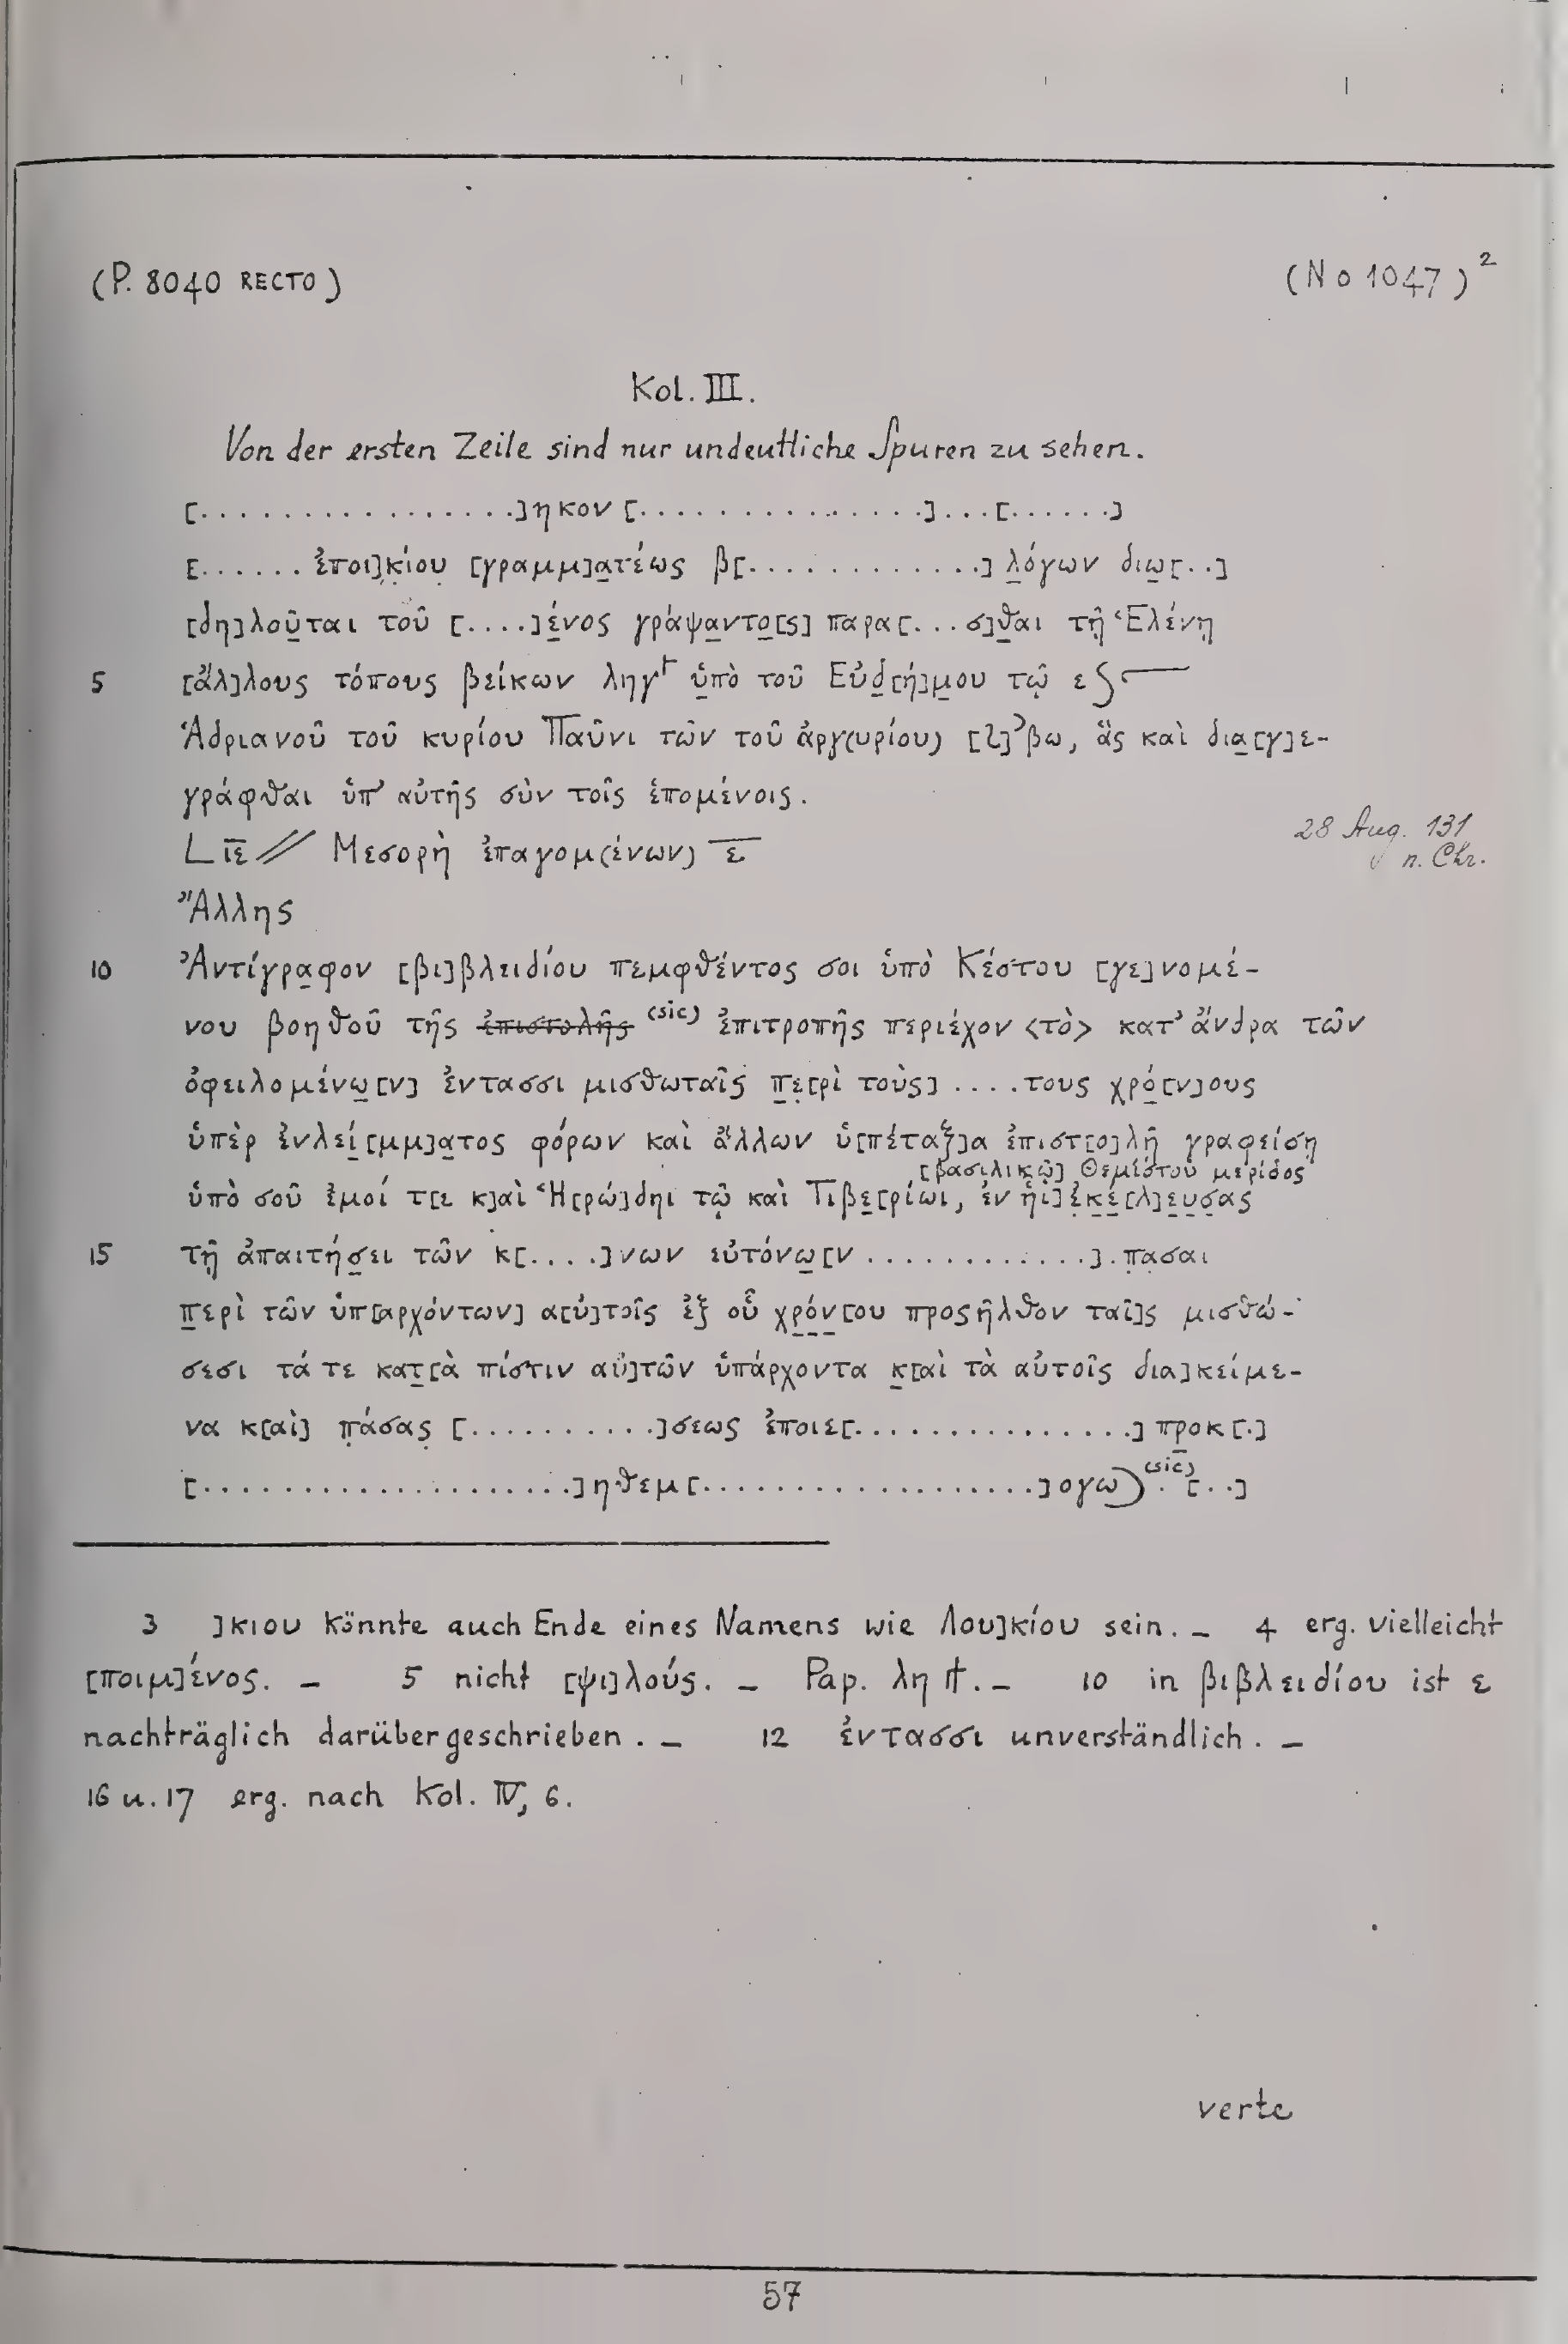 (P. 8040 RECTO)
(No 1047)²
Kol. III.
Von der ersten Zeile sind nur undeutliche Spuren zu sehen.
[. . . . . . . . . . . . . . . .]ηκον [. . . . . . . . . . . . . . .]...[......]
[...... ἐποι]κ̣ίου [γραμμ]α̣τέως β[. . . . . . . . . . . .] λ̣όγων διω̣[..]
[δη]λοῦ̣ται τοῦ [....]έ̣νος γράψα̣ντο̣[ς] παρα[...σ]θ̣αι τῇ Ἑλένῃ
5 [ἄλ]λους τόπους βείκων ληγ⊢ ὑ̣πὸ τοῦ Εὐδ̣[ή]μ̣ου τῷ ε ϛ
Ἁδριανοῦ τοῦ κυρίου Παῦνι τῶν τοῦ ἀργ(υρίου) [⟅]᾽βω, ἃς καὶ δια̣[γ]ε-
γράφθαι ὑπ᾽ αὐτῆς σὺν τοῖς ἑπομένοις.
L ι̅ε̅ // Μεσορὴ ἐπαγομ(ένων) ε̅
28 Aug. 131
n. Chr.
Ἄλλης
10 Ἀντίγρα̣φον [βι]βλειδίου πεμφθέντος σοι ὑπὸ Κέστου [γε]νομέ-
νου βοηθοῦ τῆς ἐπιστολῆς (sic) ἐπιτροπῆς περιέχον <τὸ> κατ᾽ ἄνδρα τῶν
ὀφειλομένω̣[ν] ἐντασσι μισθωταῖς π̣ε̣[ρὶ τοὺς] ....τους χρό̣[ν]ους
ὑπὲρ ἐνλεί̣[μμ]α̣τος φόρων καὶ ἄλλων ὑ[πέταξ]α ἐπιστ[ο]λῇ γραφείσῃ
[βασιλικῷ] Θεμίστου μερίδος
ὑπὸ σοῦ ἐμοί τ[ε κ]αὶ Ἡ[ρώ]δηι τῷ καὶ Τιβε̣[ρίωι, ἐν ἧι] ἐ̣κ̣έ̣[λ]ε̣υ̣σ̣ας
15 τῇ ἀπαιτήσ̣ει τῶν κ[....]νων εὐτόνω̣[ν . . . . . . . . . . . .].π̣ασαι
π̣ερὶ τῶν ὑπ[αρχόντων] α[ὐ]τοῖς ἐξ οὗ χρ̣ό̣ν̣[ου προςῆλθον ταῖ]ς μισθώ-
σεσι τά τε κατ̣[ὰ πίστιν αὐ]τῶν ὑπάρχοντα κ̣[αὶ τὰ αὐτοῖς δια]κείμε-
να κ[αὶ] π̣άσας̣ [. . . . . . . . . .]σεως ἐποιε[. . . . . . . . . . . . . . .] π̣ροκ[.]
[. . . . . . . . . . . . . . . . . . .]ηθεμ[. . . . . . . . . . . . . . . . . .]ογω) (sic) .[..]
3 ]κιου könnte auch Ende eines Namens wie Λου]κίου sein. – 4 erg. vielleicht
[ποιμ]ένος. – 5 nicht [ψι]λούς. – Pap. λη ⊢. – 10 in βιβλειδίου ist ε
nachträglich darübergeschrieben. – 12 ἐντασσι unverständlich. –
16 u. 17 erg. nach Kol. IV, 6.
verte
57